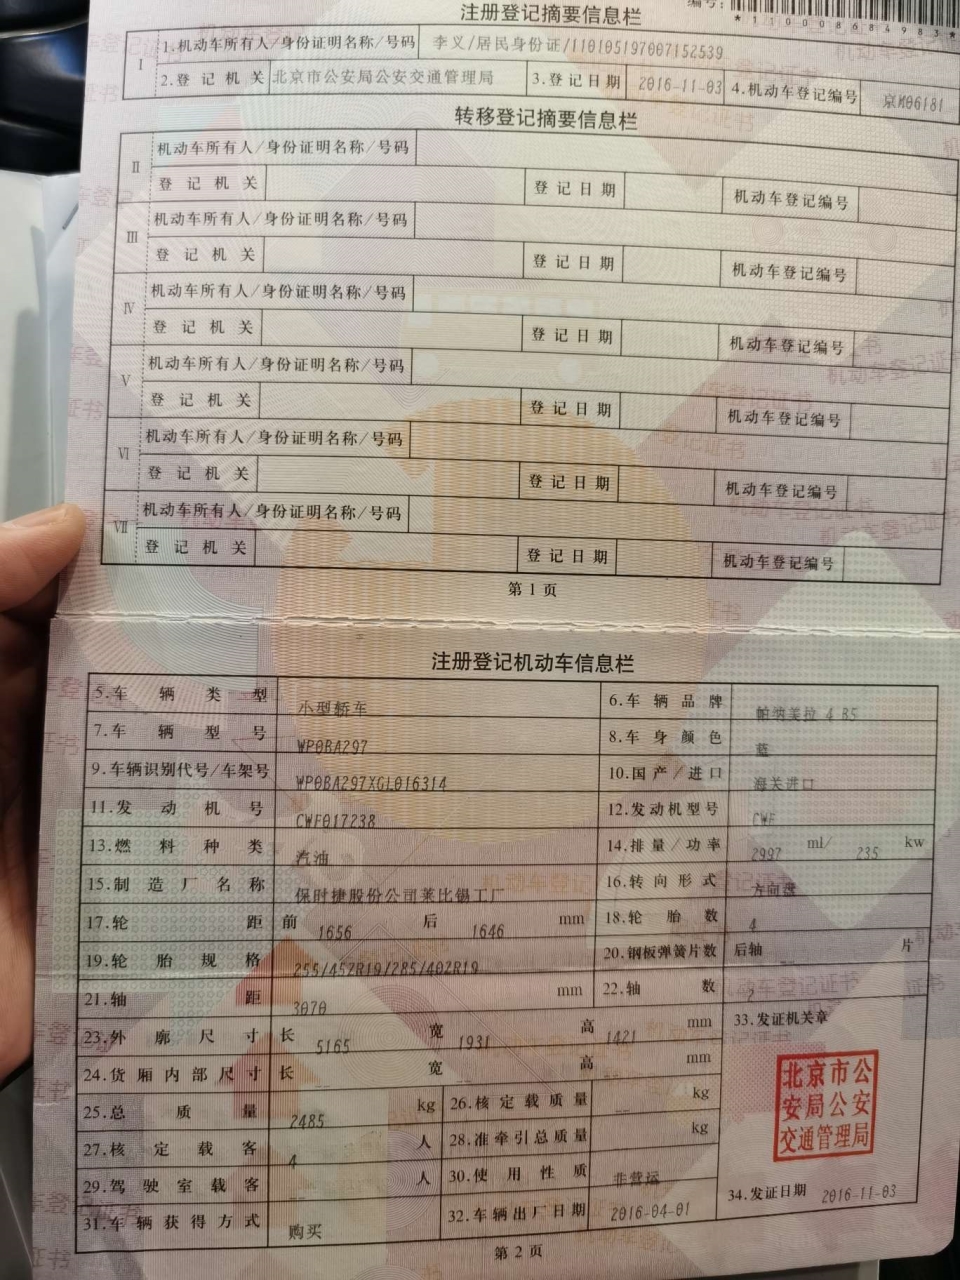 注册登记摘要信息栏
编号:
*110008684983*
I
1.机动车所有人/身份证明名称/号码 李义/居民身份证/110105197007152539
2.登记机关 北京市公安局公安交通管理局 3.登记日期 2016-11-03 4.机动车登记编号 京M06181
转移登记摘要信息栏
II 机动车所有人/身份证明名称/号码
登记机关 登记日期 机动车登记编号
III 机动车所有人/身份证明名称/号码
登记机关 登记日期 机动车登记编号
IV 机动车所有人/身份证明名称/号码
登记机关 登记日期 机动车登记编号
V 机动车所有人/身份证明名称/号码
登记机关 登记日期 机动车登记编号
VI 机动车所有人/身份证明名称/号码
登记机关 登记日期 机动车登记编号
VII 机动车所有人/身份证明名称/号码
登记机关 登记日期 机动车登记编号
第1页
注册登记机动车信息栏
5.车辆类型 小型轿车 6.车辆品牌 帕纳美拉4
7.车辆型号 WP0BA297 8.车身颜色 蓝
9.车辆识别代号/车架号 WP0BA297XGL016314 10.国产/进口 海关进口
11.发动机号 CWF017238 12.发动机型号 CWF
13.燃料种类 汽油 14.排量/功率 2997 ml/ 235 kw
15.制造厂名称 保时捷股份公司莱比锡工厂 16.转向形式 方向盘
17.轮距 前 1656 后 1646 mm 18.轮胎数 4
19.轮胎规格 255/45ZR19/285/40ZR19 20.钢板弹簧片数 后轴 -- 片
21.轴距 3070 mm 22.轴数 2
23.外廓尺寸 长 5165 宽 1931 高 1421 mm 33.发证机关章
24.货厢内部尺寸 长 -- 宽 -- 高 -- mm
25.总质量 2485 kg 26.核定载质量 -- kg
27.核定载客 4 人 28.准牵引总质量 kg
29.驾驶室载客 -- 人 30.使用性质 非营运
31.车辆获得方式 购买 32.车辆出厂日期 2016-04-01
北京市公
安局公安
交通管理局
34.发证日期 2016-11-03
第2页